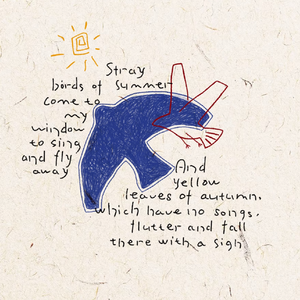 Stray
birds of summer
come to
my
window
to sing
and fly
away
And
yellow
leaves of autumn.
which have no songs.
flutter and fall
there with a sigh